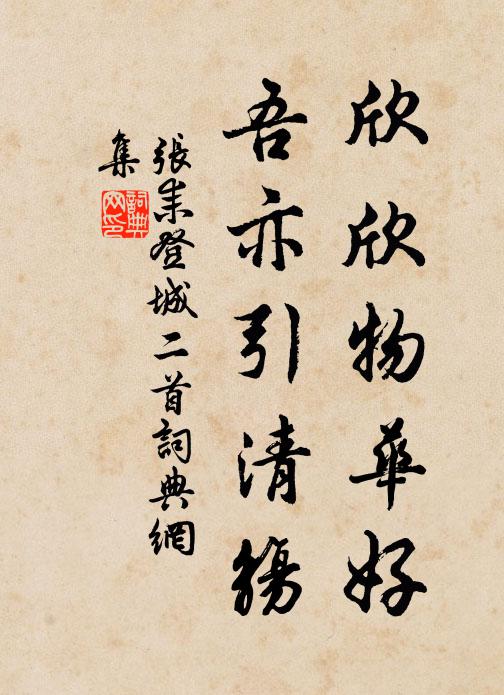 欣欣物華好
吾亦引清觴
張耒登城二首詞典網
集
詞典
网印